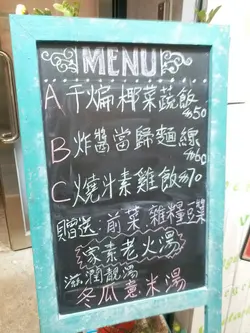 MENU
A 干煸椰菜蔬飯 $50
B 炸醬當歸麵線 $60
C 燒汁素雞飯 $70
贈送：前菜、雜糧豆漿
家素老火湯
滋潤靚湯
冬瓜薏米湯